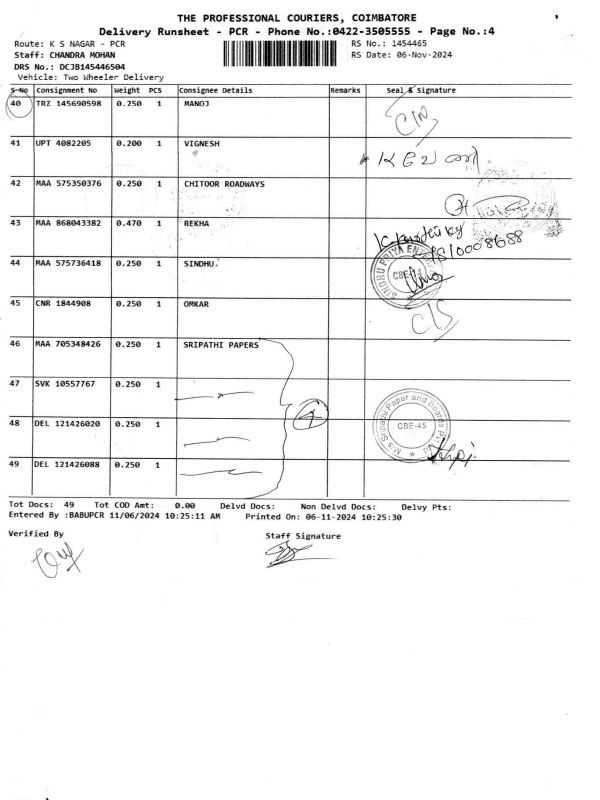 THE PROFESSIONAL COURIERS, COIMBATORE
Delivery Runsheet - PCR - Phone No.:0422-3505555 - Page No.:4
Route: K S NAGAR - PCR
RS No.: 1454465
Staff: CHANDRA MOHAN
RS Date: 06-Nov-2024
DRS No.: DCJB145446504
Vehicle: Two Wheeler Delivery
S-No Consignment No Weight PCS Consignee Details Remarks Seal & Signature
40 TRZ 145690598 0.250 1 MANOJ
41 UPT 4082205 0.200 1 VIGNESH
42 MAA 575350376 0.250 1 CHITOOR ROADWAYS
43 MAA 868043382 0.470 1 REKHA
44 MAA 575736418 0.250 1 SINDHU.
SINDHU PRIYA
CBE
45 CNR 1844908 0.250 1 OMKAR
46 MAA 705348426 0.250 1 SRIPATHI PAPERS
47 SVK 10557767 0.250 1
4
M/s Sripathi Paper and Boards
CBE-45
48 DEL 121426020 0.250 1
49 DEL 121426088 0.250 1
Tot Docs: 49 Tot COD Amt: 0.00 Delvd Docs: Non Delvd Docs: Delvy Pts:
Entered By :BABUPCR 11/06/2024 10:25:11 AM Printed On: 06-11-2024 10:25:30
Verified By
Staff Signature